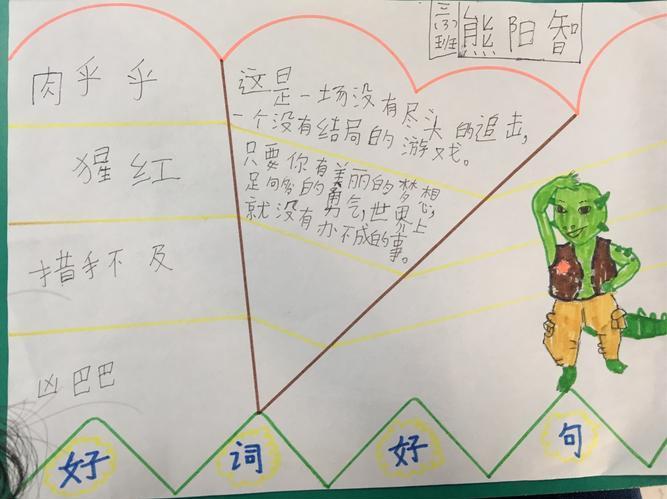 班
熊阳智
肉乎乎
猩红
措手不及
凶巴巴
这是一场没有尽头的追击,
一个没有结局的游戏。
只要你有美丽的梦想,
足够的勇气,世界上
就没有办不成的事。
好词好句